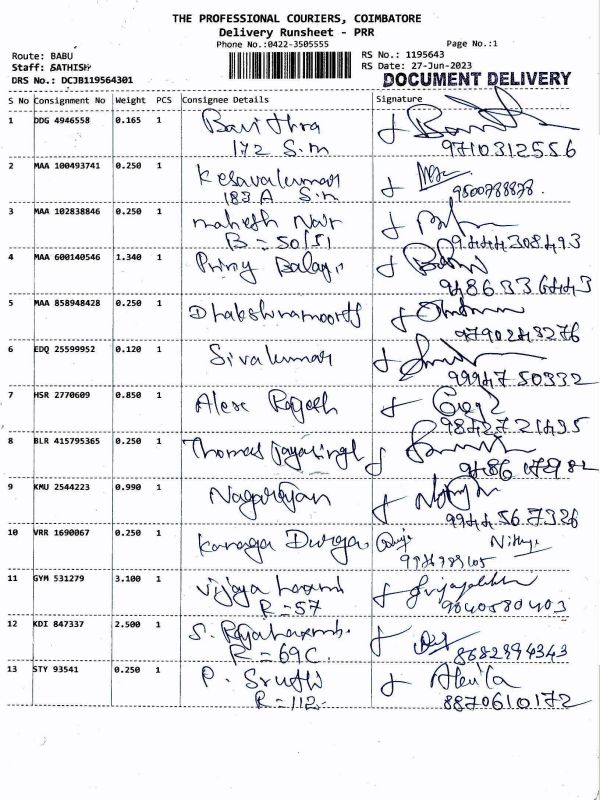 THE PROFESSIONAL COURIERS, COIMBATORE
Delivery Runsheet - PRR
Phone No.:0422-3505555
Page No.:1
Route: BABU
RS No.: 1195643
Staff: SATHISH
RS Date: 27-Jun-2023
DRS No.: DCJB119564301
DOCUMENT DELIVERY
S No Consignment No Weight PCS Consignee Details Signature
1 DDG 4946558 0.165 1 Bavithra
172 S.m 9710312556
2 MAA 100493741 0.250 1 Kesavakumar
183 A S.m
3 MAA 102838846 0.250 1 mahesh Nair
B = 50/51 9444308493
4 MAA 600140546 1.340 1 Balaji
9486336443
5 MAA 858948428 0.250 1
9790243276
6 EDQ 25599952 0.120 1 Sivakumar
9994750332
7 HSR 2770609 0.850 1 Alex Rajesh
9842721495
8 BLR 415795365 0.250 1 Thomas Jayasingh
9 KMU 2544223 0.990 1 Nagarajan
9944567326
10 VRR 1690067 0.250 1 Kanaga Durga
11 GYM 531279 3.100 1 Vijaya
R = 57 9040580403
12 KDI 847337 2.500 1 S.
R = 69C. 8682994343
13 STY 93541 0.250 1 P. Sruthi
R = 112 8870610172